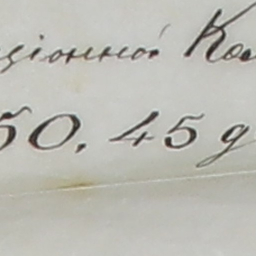 ціонной Ко
50, 45 д